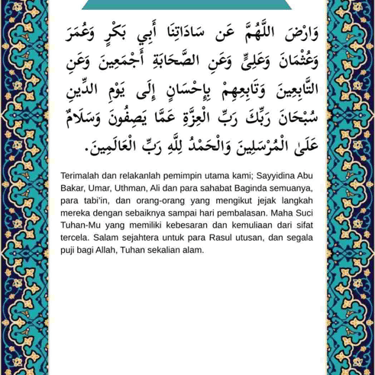 وَارْضَ اللَّهُمَّ عَن سَادَاتِنَا أَبِي بَكْرٍ وَعُمَرَ
وَعُثْمَانَ وَعَلِيٍّ وَعَنِ الصَّحَابَةِ أَجْمَعِينَ وَعَنِ
التَّابِعِينَ وَتَابِعِهِمْ بِإِحْسَانٍ إِلَى يَوْمِ الدِّينِ
سُبْحَانَ رَبِّكَ رَبِّ الْعِزَّةِ عَمَّا يَصِفُونَ وَسَلَامٌ
عَلَىٰ الْمُرْسَلِينَ وَالْحَمْدُ لِلَّهِ رَبِّ الْعَالَمِينَ.
Terimalah dan relakanlah pemimpin utama kami; Sayyidina Abu
Bakar, Umar, Uthman, Ali dan para sahabat Baginda semuanya,
para tabi'in, dan orang-orang yang mengikut jejak langkah
mereka dengan sebaiknya sampai hari pembalasan. Maha Suci
Tuhan-Mu yang memiliki kebesaran dan kemuliaan dari sifat
tercela. Salam sejahtera untuk para Rasul utusan, dan segala
puji bagi Allah, Tuhan sekalian alam.